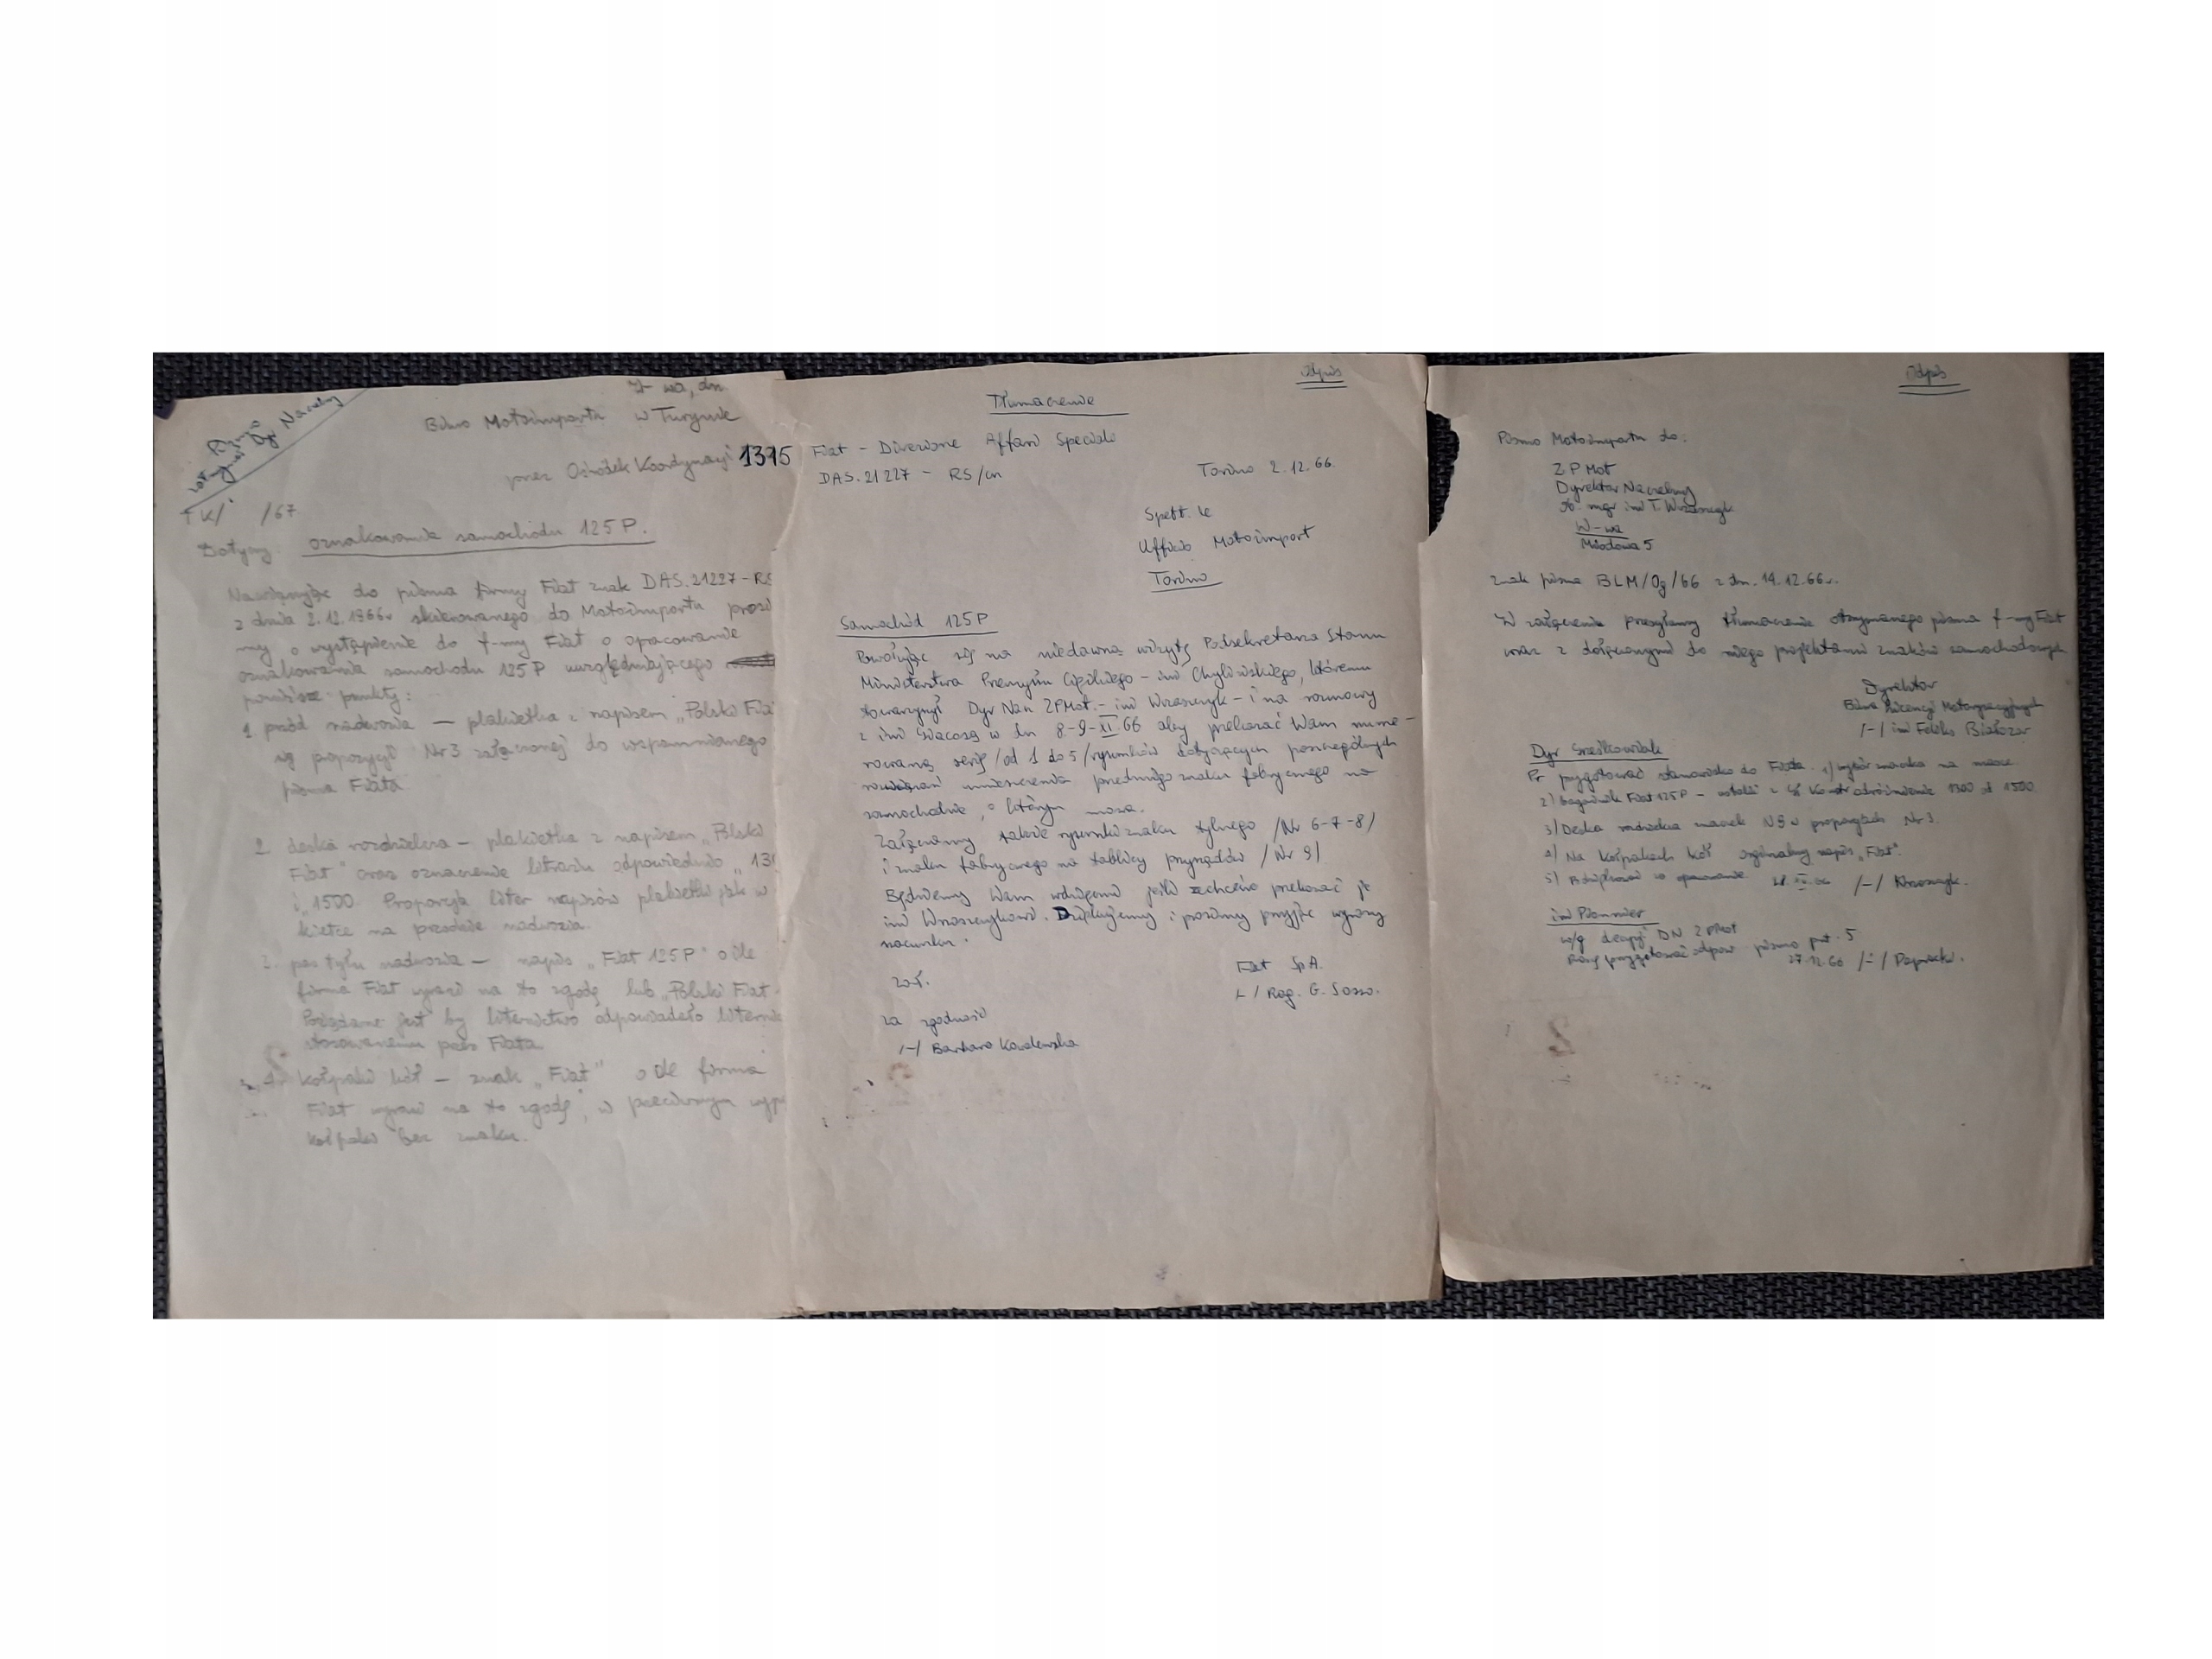 W-wa, dn.
Biuro Motoimportu w Turynie
przez Ośrodek Koordynacji 1315
Dyr. Naczelny
TK/ /67
Dotyczy: oznakowanie samochodu 125P.
Nawiązując do pisma firmy Fiat znak DAS.21227-RS
z dnia 2.12.1966r skierowanego do Motoimportu prosi
my o wystąpienie do f-my Fiat o opracowanie
oznakowania samochodu 125P uwzględniającego
poniższe punkty:
1. przód nadwozia — plakietka z napisem „Polski Fia
wg propozycji Nr 3 załączonej do wspomnianego
pisma Fiata
2. deska rozdzielcza — plakietka z napisem „Polski
Fiat" oraz oznaczenie litrażu odpowiednio „13
i „1500. Proporcja liter napisów plakietki jak w
kietce na przodzie nadwozia.
3. pas tyłu nadwozia — napis „Fiat 125P" o ile
firma Fiat wyrazi na to zgodę lub „Polski Fiat
Pożądane jest by liternictwo odpowiadało liternic
stosowanemu przez Fiata
4. kołpaki kół — znak „Fiat" o ile firma
Fiat wyrazi na to zgodę, w przeciwnym wyp
kołpaki bez znaku.
Odpis
Tłumaczenie
Fiat - Direzione Affari Speciali
DAS.21227 - RS/cn
Torino 2.12.66.
Spett. le
Ufficio Motoimport
Torino
Samochód 125P
Powołując się na niedawną wizytę Podsekretarza Stanu
Ministerstwa Przemysłu Ciężkiego - inż Chylińskiego, któremu
towarzyszył Dyr Nacz ZPMot. - inż Wrzaszczyk - i na rozmowy
z inż Giacosą w dn 8-9-XI.66 aby przekazać Wam nume-
rowaną serię /od 1 do 5/ rysunków dotyczących poszczególnych
rozwiązań umieszczenia przedniego znaku fabrycznego na
samochodzie, o którym mowa.
Załączamy także rysunki znaku tylnego /Nr 6-7-8/
i znaku fabrycznego na tablicy przyrządów /Nr 9/
Będziemy Wam wdzięczni jeśli zechcecie przekazać je
inż Wrzaszczykowi. Dziękujemy i prosimy przyjąć wyrazy
szacunku.
Fiat SpA.
/-/ Rag. G. Sosso.
zał.
za zgodność
/-/ Barbara Kowalewska
Odpis
Pismo Motoimportu do:
ZPMot
Dyrektor Naczelny
Ob. mgr inż T. Wrzaszczyk
W-wa
Miodowa 5
znak pisma BLM/Og/66 z dn. 14.12.66r.
W załączeniu przesyłamy tłumaczenie otrzymanego pisma f-my Fiat
wraz z dołączonymi do niego projektami znaków samochodowych
Dyrektor
Biura Licencji Motoryzacyjnych
/-/ inż Feliks Białozor
Dyr
Pr przygotować stanowisko do Fiata. 1/ wybór znaczka na masce
2/ bagażnik Fiat 125P - ustalić z odróżnienie 1300 od 1500.
3/ Deska rozdzielcza znaczek N9 w proporcjach Nr 3.
4/ Na kołpakach kół oryginalny napis „Fiat".
5/ /-/ Wrzaszczyk.
inż Plommer
w/g decyzji DN ZPMot
Proszę przygotować odpow pismo pkt. 5
27.12.66 /-/